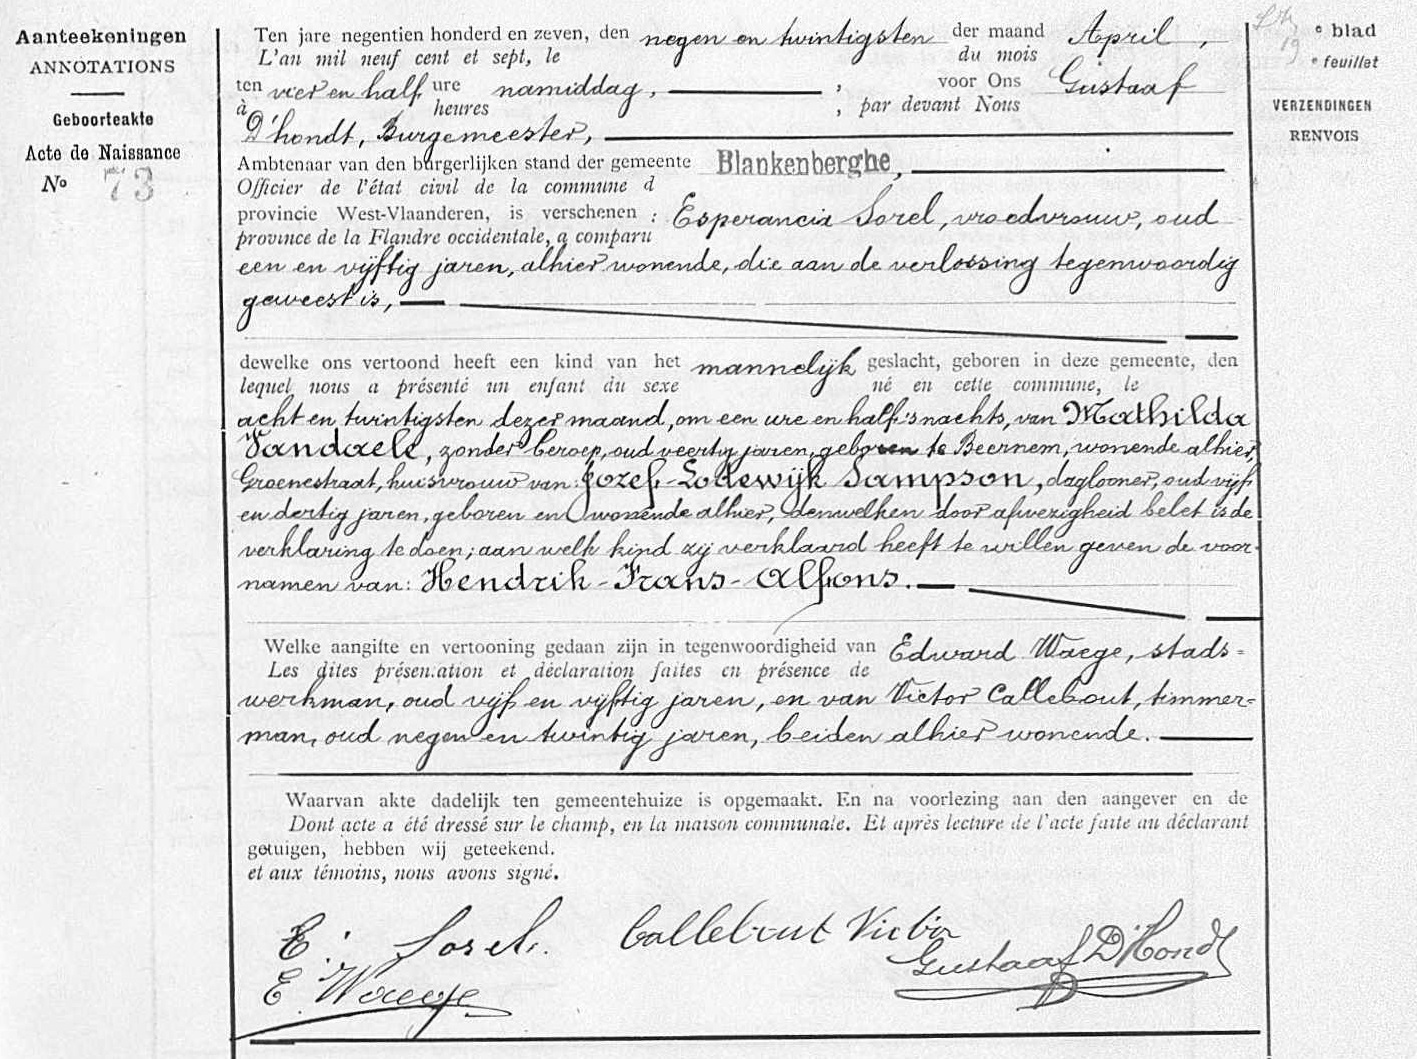 Aanteekeningen
ANNOTATIONS
Geboorteakte
Acte de Naissance
No 73
Ten jare negentien honderd en zeven, den negen en twintigsten der maand April,
L'an mil neuf cent et sept, le du mois
ten vier en half ure namiddag, , voor Ons Gustaaf
à heures , par devant Nous
D'hondt, Burgemeester,
Ambtenaar van den burgerlijken stand der gemeente Blankenberghe,
Officier de l'état civil de la commune d
provincie West-Vlaanderen, is verschenen : Esperancia Sorel, vroedvrouw, oud
province de la Flandre occidentale, a comparu
een en vijftig jaren, alhier wonende, die aan de verlossing tegenwoordig
geweest is,
dewelke ons vertoond heeft een kind van het mannelijk geslacht, geboren in deze gemeente, den
lequel nous a présenté un enfant du sexe né en cette commune, le
acht en twintigsten dezer maand, om een ure en half 's nachts, van Mathilda
Vandaele, zonder beroep, oud veertig jaren, geboren te Beernem, wonende alhier,
Groenestraat, huisvrouw van: Jozef-Lodewijk Sampson, daglooner, oud vijf
en dertig jaren, geboren en wonende alhier, denwelken door afwezigheid belet is de
verklaring te doen; aan welk kind zij verklaard heeft te willen geven de voor-
namen van: Hendrik-Frans-Alfons.
Welke aangifte en vertooning gedaan zijn in tegenwoordigheid van Edward Waege, stads=
Les dites présentation et déclaration faites en présence de
werkman, oud vijf en vijftig jaren, en van Victor Callebout, timmer=
man, oud negen en twintig jaren, beiden alhier wonende.
Waarvan akte dadelijk ten gemeentehuize is opgemaakt. En na voorlezing aan den aangever en de
Dont acte a été dressé sur le champ, en la maison communale. Et après lecture de l'acte faite au déclarant
getuigen, hebben wij geteekend.
et aux témoins, nous avons signé.
E. Sorel. Callebout Victor
Gustaaf D'Hondt
E Waege
19 e blad
e feuillet
VERZENDINGEN
RENVOIS